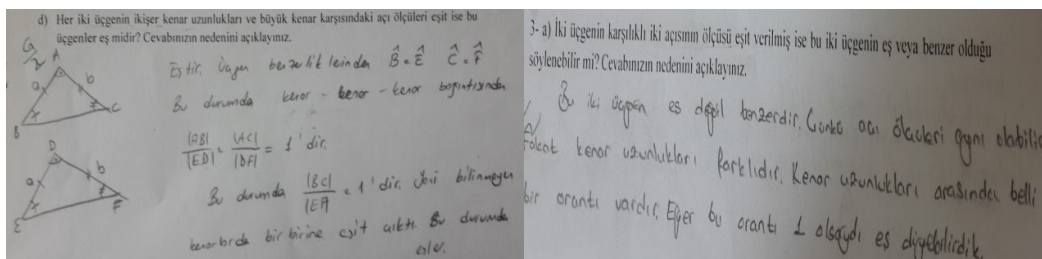 d) Her iki üçgenin ikişer kenar uzunlukları ve büyük kenar karşısındaki açı ölçüleri eşit ise bu
üçgenler eş midir? Cevabınızın nedenini açıklayınız.
A
a
b
B
C
D
a
b
E
F
Eştir. Üçgen benzerliklerinden B̂ = Ê Ĉ = F̂
Bu durumda kenar - kenar - kenar bağıntısından
|AB| / |ED| = |AC| / |DF| = 1'dir.
Bu durumda |BC| / |EF| = 1'dir. Yani bilinmeyen
kenarlarda bir birine eşit çıktı. Bu durumda
3- a) İki üçgenin karşılıklı iki açısının ölçüsü eşit verilmiş ise bu iki üçgenin eş veya benzer olduğu
söylenebilir mi? Cevabınızın nedenini açıklayınız.
Bu iki üçgen eş değil benzerdir. Çünkü açı ölçüleri aynı olabilir
Fakat kenar uzunlukları farklıdır. Kenar uzunlukları arasında belli
bir orantı vardır. Eğer bu orantı 1 olsaydı eş diyebilirdik.